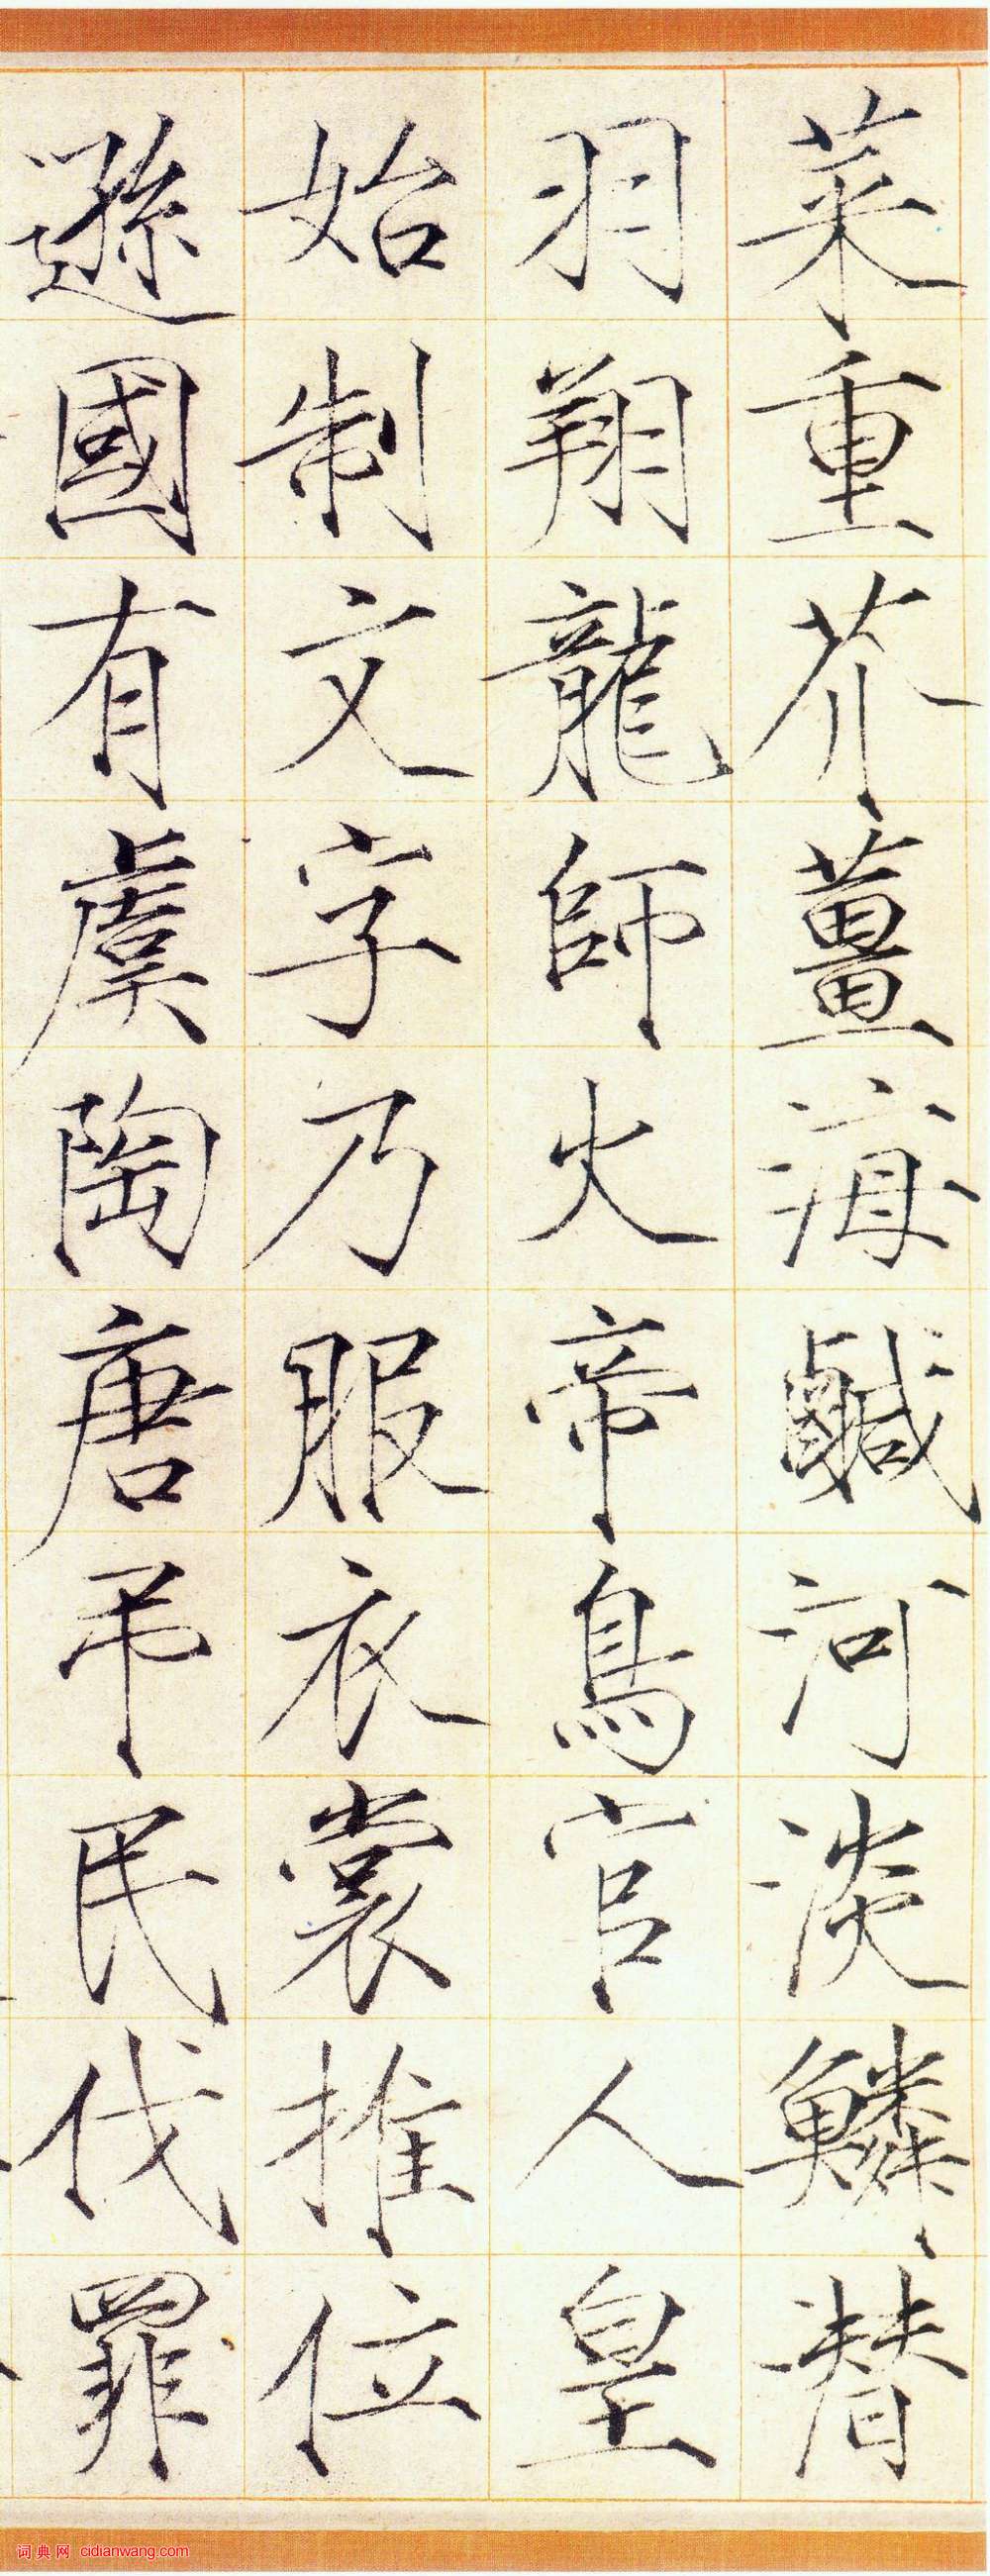 菜重芥薑海鹹河淡鱗潛
羽翔龍師火帝鳥官人皇
始制文字乃服衣裳推位
遜國有虞陶唐弔民伐罪
词典网 cidianwang.com